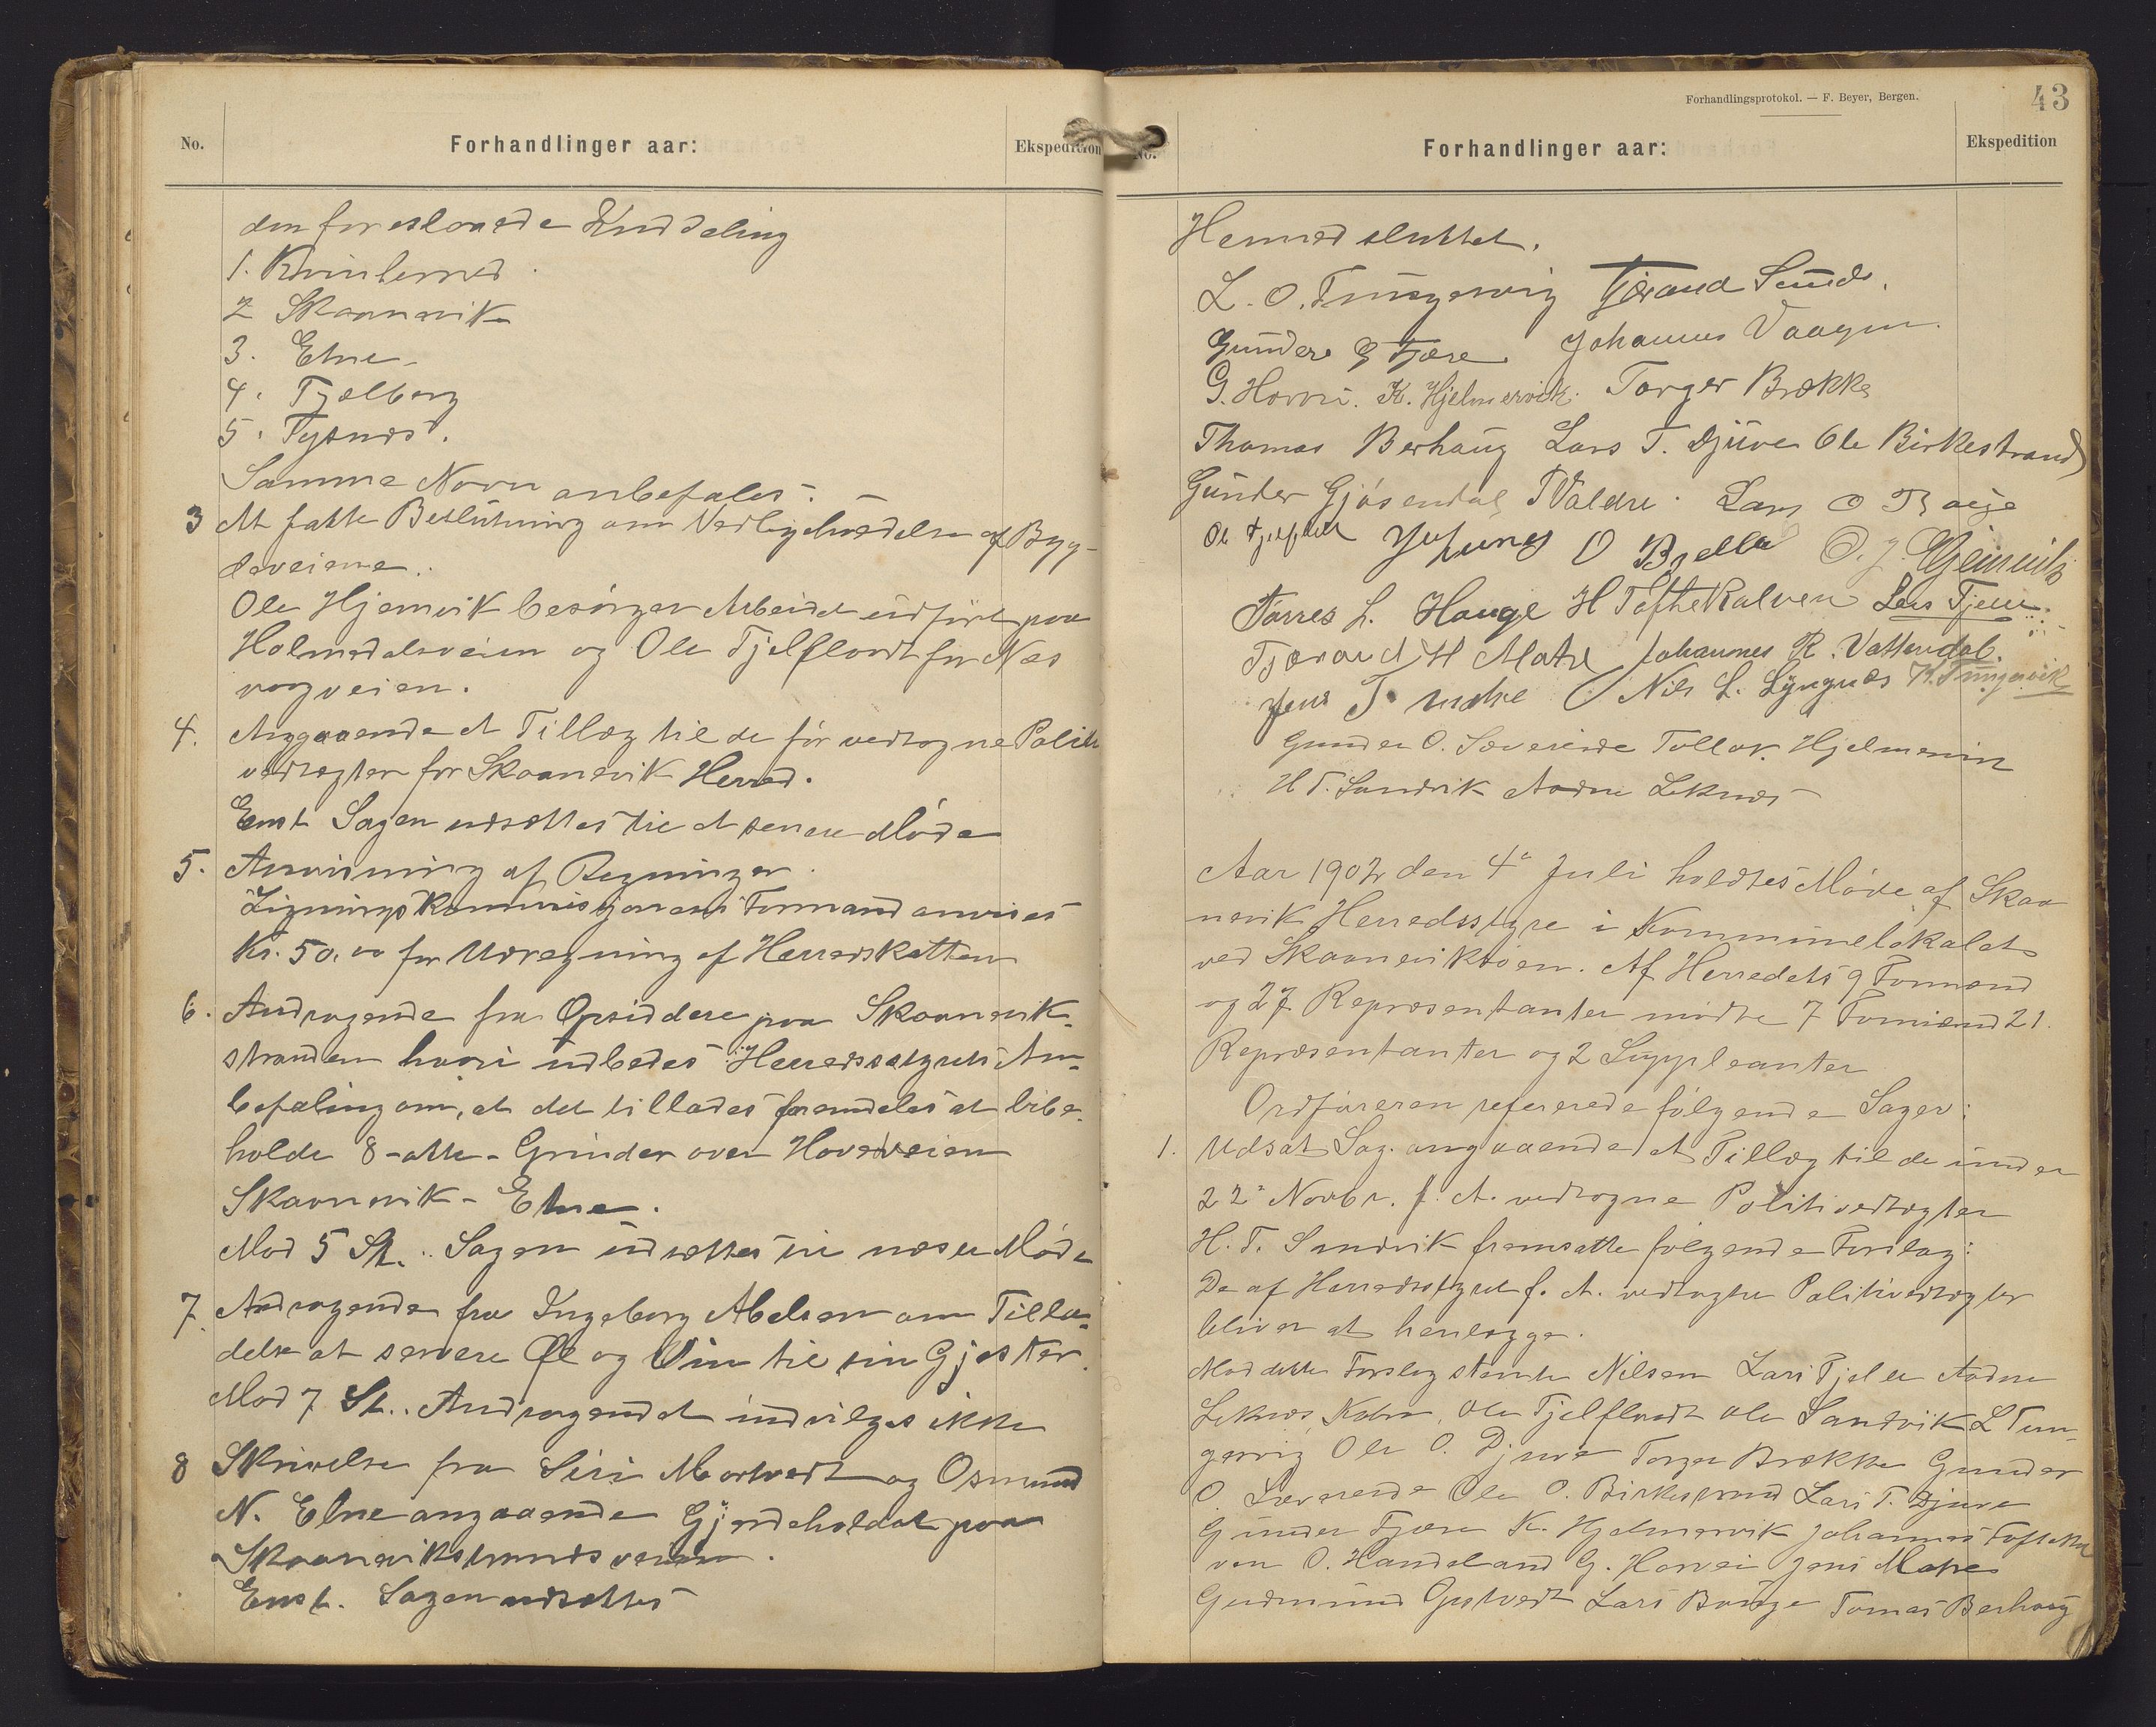 No.
Forhandlinger aar:
Ekspedition
den foreslaaede Inddeling
1. Kvinherred
2 Skaanevik
3. Etne
4. Fjelberg
5. Tysnes.
Samme Navn anbefales.
3 At fatte Beslutning om Vedligeholdelse af Byg-
deveiene.
Ole Hjemvik besörger Arbeidet udfört paa
Holmedalsveien og Ole Fjelflaadt for Næs
vaagveien.
4. Angaaende et Tillæg til de för vedtagne Politi
vedtægter for Skaanevik Herred.
Enst Sagen udsættes til et senere Möde
5. Anvisning af Regninger.
Ligningskommissjonens Formand anvises
Kr. 50.00 for Udregning af Herredskatten
6. Andragende fra Opsiddere paa Skaanevik-
stranden hvori udbedes Herredsstyrets An-
befaling om, at det tillades fremdeles at bibe-
holde 8-otte-Grinder over Hovedveien
Skaanevik-Etne.
Mod 5 St. Sagen udsættes til næste Möde
7. Andragende fra Ingeborg Abelsen om Tilla-
delse at servere Øl og Vin til sine Gjester.
Mod 7 St. Andragendet indvilges ikke
8 Skrivelse fra Siri Mortvedt og Osmund
N. Etne angaaende Gjerdeholdet paa
Skaanevikstrandsveien.
Enst. Sagen udsættes
Forhandlingsprotokol. — F. Beyer, Bergen.
43
No.
Forhandlinger aar:
Ekspedition
Hermed sluttet.
L. O. Tungesvig Tjæraad Sunde.
Gunder G Fjære Johannes Vaagen
G. Horvei. K. Hjelmervik. Torger Brække
Thomas Berhaug Lars T. Djuve Ole Birkestrand
Gunder Gjösendal T Valdre. Lars O Bauge
Ole Fjelflaat O Bjelle O. J.
Torres L. Hauge H Toftekalven Lars Fjelle
Tjæraad H Matre Johannes R. Vattendal.
Jens T. Matre Nils L. Lyngnes K. Tungesvik
Gunder O. Sævereide Tollak Hjelmevin
H T. Sandvik Aadne Leknes
Aar 1902 den 4e Juli holdtes Möde af Skaa
nevik Herredsstyre i Kommunelokalet
ved Skaaneviksöen. Af Herredets 9 Formænd
og 27 Repræsentanter mödte 7 Formænd 21
Repræsentanter og 2 Suppleanter
Ordföreren refererede fölgende Sager:
1. Udsat Sag angaaende et Tillæg til de under
22e Novbr. f. A. vedtagne Politivedtægter
H. T. Sandvik fremsatte fölgende Forslag:
De af Herredsstyret f. A. vedtagne Politivedtægter
bliver at henlægge.
Mod dette Forslag stemte Nilsen Lars Fjelle Aadne
Leknes, Ole Fjelflaadt Ole Sandvik L Tun-
gesvig Ole O. Djuve Torger Brække Gunder
O. Sævereide Ole O. Birkestrand Lars T. Djuve
Gunder Fjære K. Hjelmervik Johannes Toftekal
ven O. Handeland G. Horvei Jens Matre
Gudmund Opstvedt Lars Bauge Tomas Berhaug